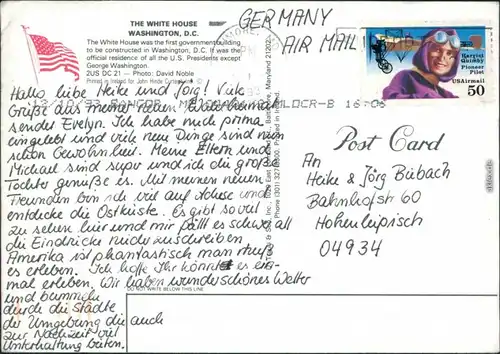 THE WHITE HOUSE
WASHINGTON, D.C.
The White House was the first government building
to be constructed in Washington, D.C. It was the
official residence of all the U.S. Presidents except
George Washington.
2US DC 21 – Photo: David Noble
Printed in Ireland
GERMANY
AIR MAIL
Harriet
Quimby
Pioneer
Pilot
USAirmail
50
Hallo liebe Heike und Jörg! Viele
Grüße aus meiner neuen Heimat
sendet Evelyn. Ich habe mich prima
eingelebt und viele neue Dinge sind nun
schon Gewohnheit. Meine Eltern und
Michael sind super und ich die große
Tochter genieße es. Mit meinen neuen
Freunden bin ich viel auf Achse und
entdecke die Ostküste. Es gibt so viel
zu sehen hier und mir fällt es schwer all
die Eindrücke niederzuschreiben
Amerika ist phantastisch man muß
es erleben. Ich hoffe Ihr könnt es ein-
mal erleben. Wir haben wunderschönes Wetter
DO NOT WRITE BELOW THIS LINE
und bummeln
durch die Städte
der Umgebung die auch
zur Nachtzeit viel
Unterhaltung bieten.
Baltimore, Maryland 21202
Phone (301)
Printed in Ireland.
Post Card
An
Heike & Jörg Bübach
Bahnhofstr 60
Hohenleipisch
04934